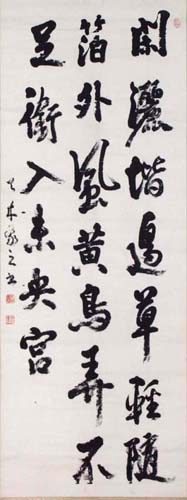 閑灑堦邊草輕隨
箔外風黄鳥弄不
足銜入未央宮